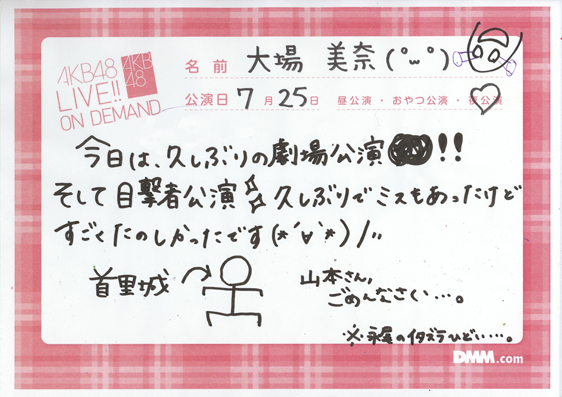 AKB48
LIVE!!
ON DEMAND
AKB
48
名前 大場 美奈(°ω°)
公演日 7月25日 昼公演・おやつ公演・夜公演
今日は、久しぶりの劇場公演!!
そして目撃者公演 久しぶりでミスもあったけど
すごくたのしかったです(*´∀`*)/
首里城
山本さん,
ごめんなさい…。
※永尾のイタズラひどい…。
DMM.com